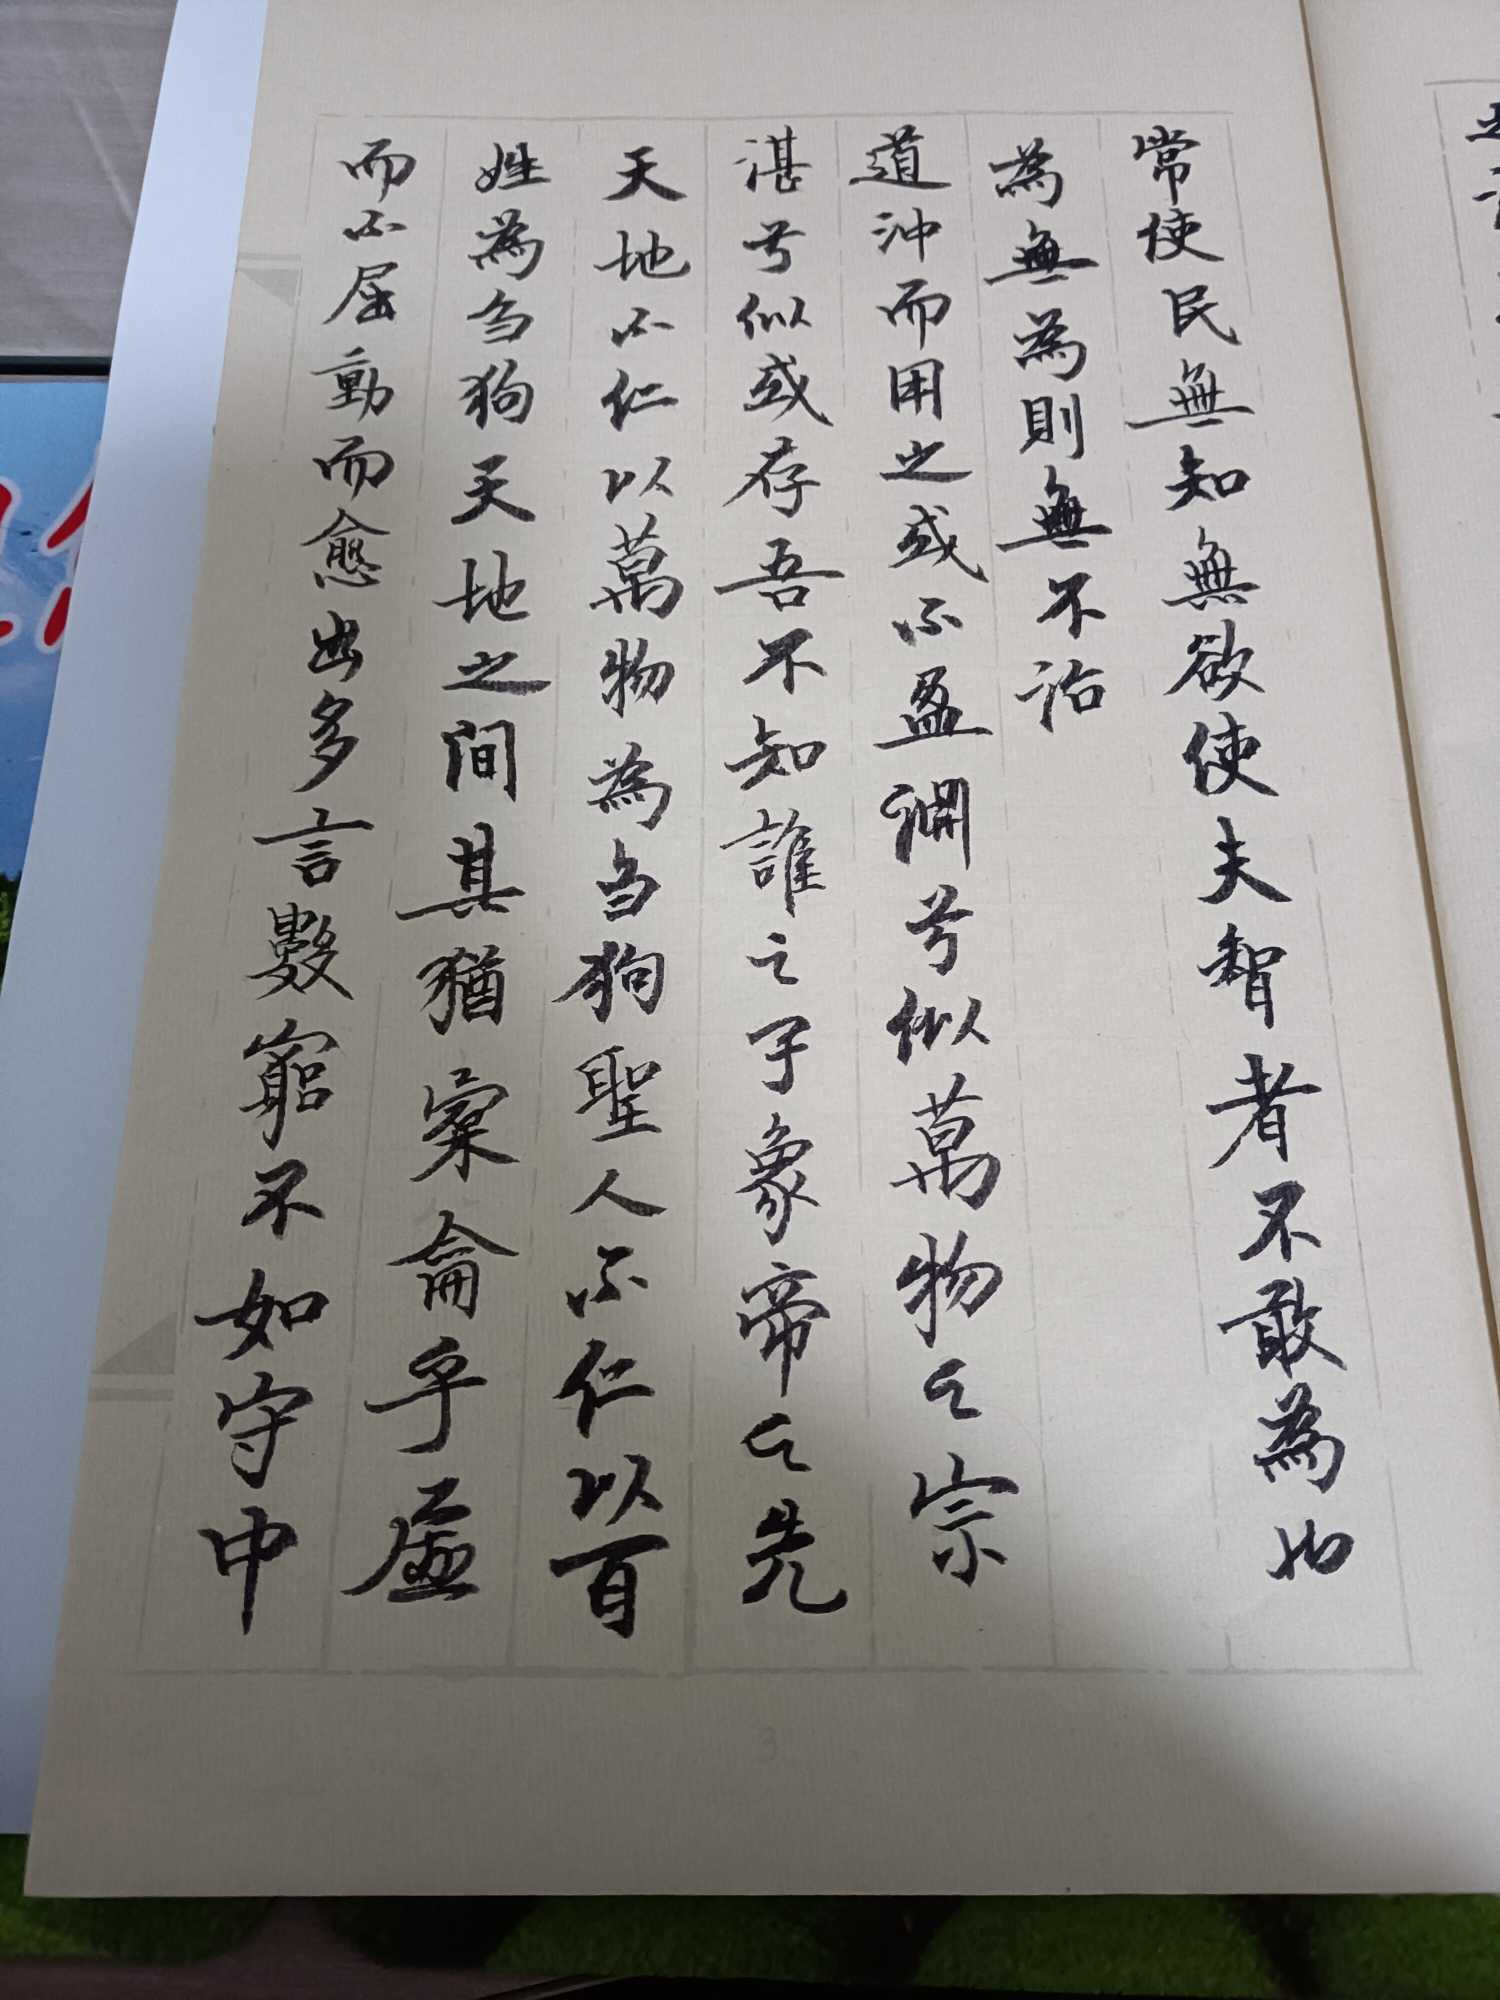 常使民無知無欲使夫智者不敢為也
為無為則無不治
道沖而用之或不盈淵兮似萬物之宗
湛兮似或存吾不知誰之子象帝之先
天地不仁以萬物為刍狗聖人不仁以百
姓為刍狗天地之间其猶橐龠乎虛
而不屈動而愈出多言數窮不如守中
3